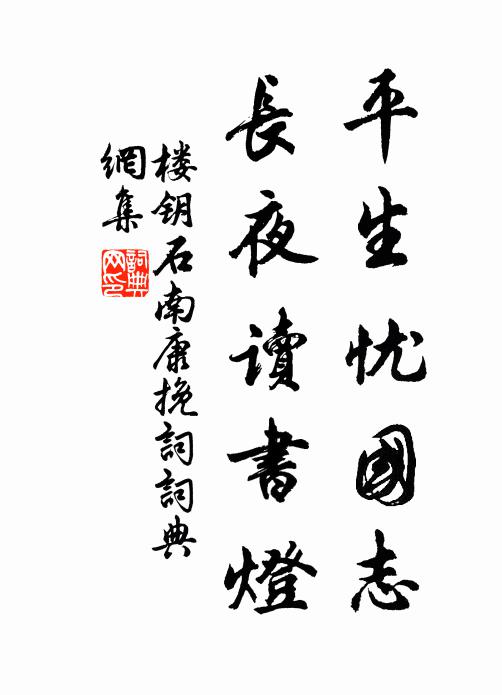 平生忧國志
長夜讀書燈
楼钥石南康挽詞詞典
網集
詞典
网印